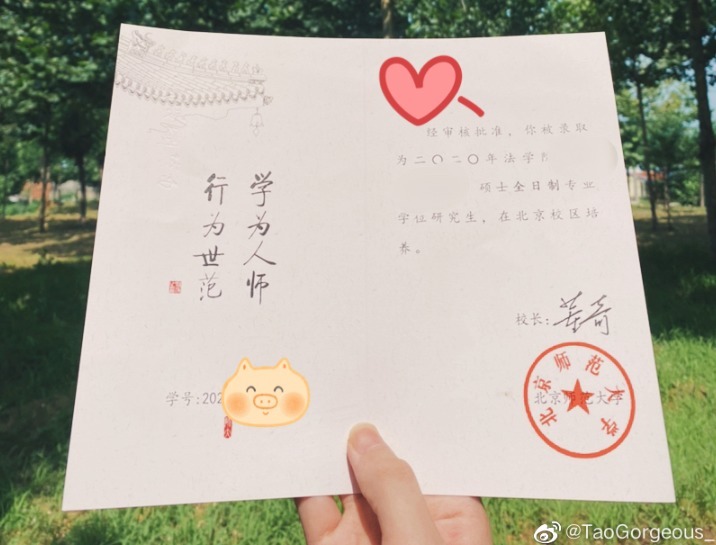 学为人师
行为世范
学号:202
经审核批准,你被录取
为二〇二〇年法学
硕士全日制专业
学位研究生,在北京校区培
养。
校长:董奇
北京师范大学
北京师范大学
@TaoGorgeous_